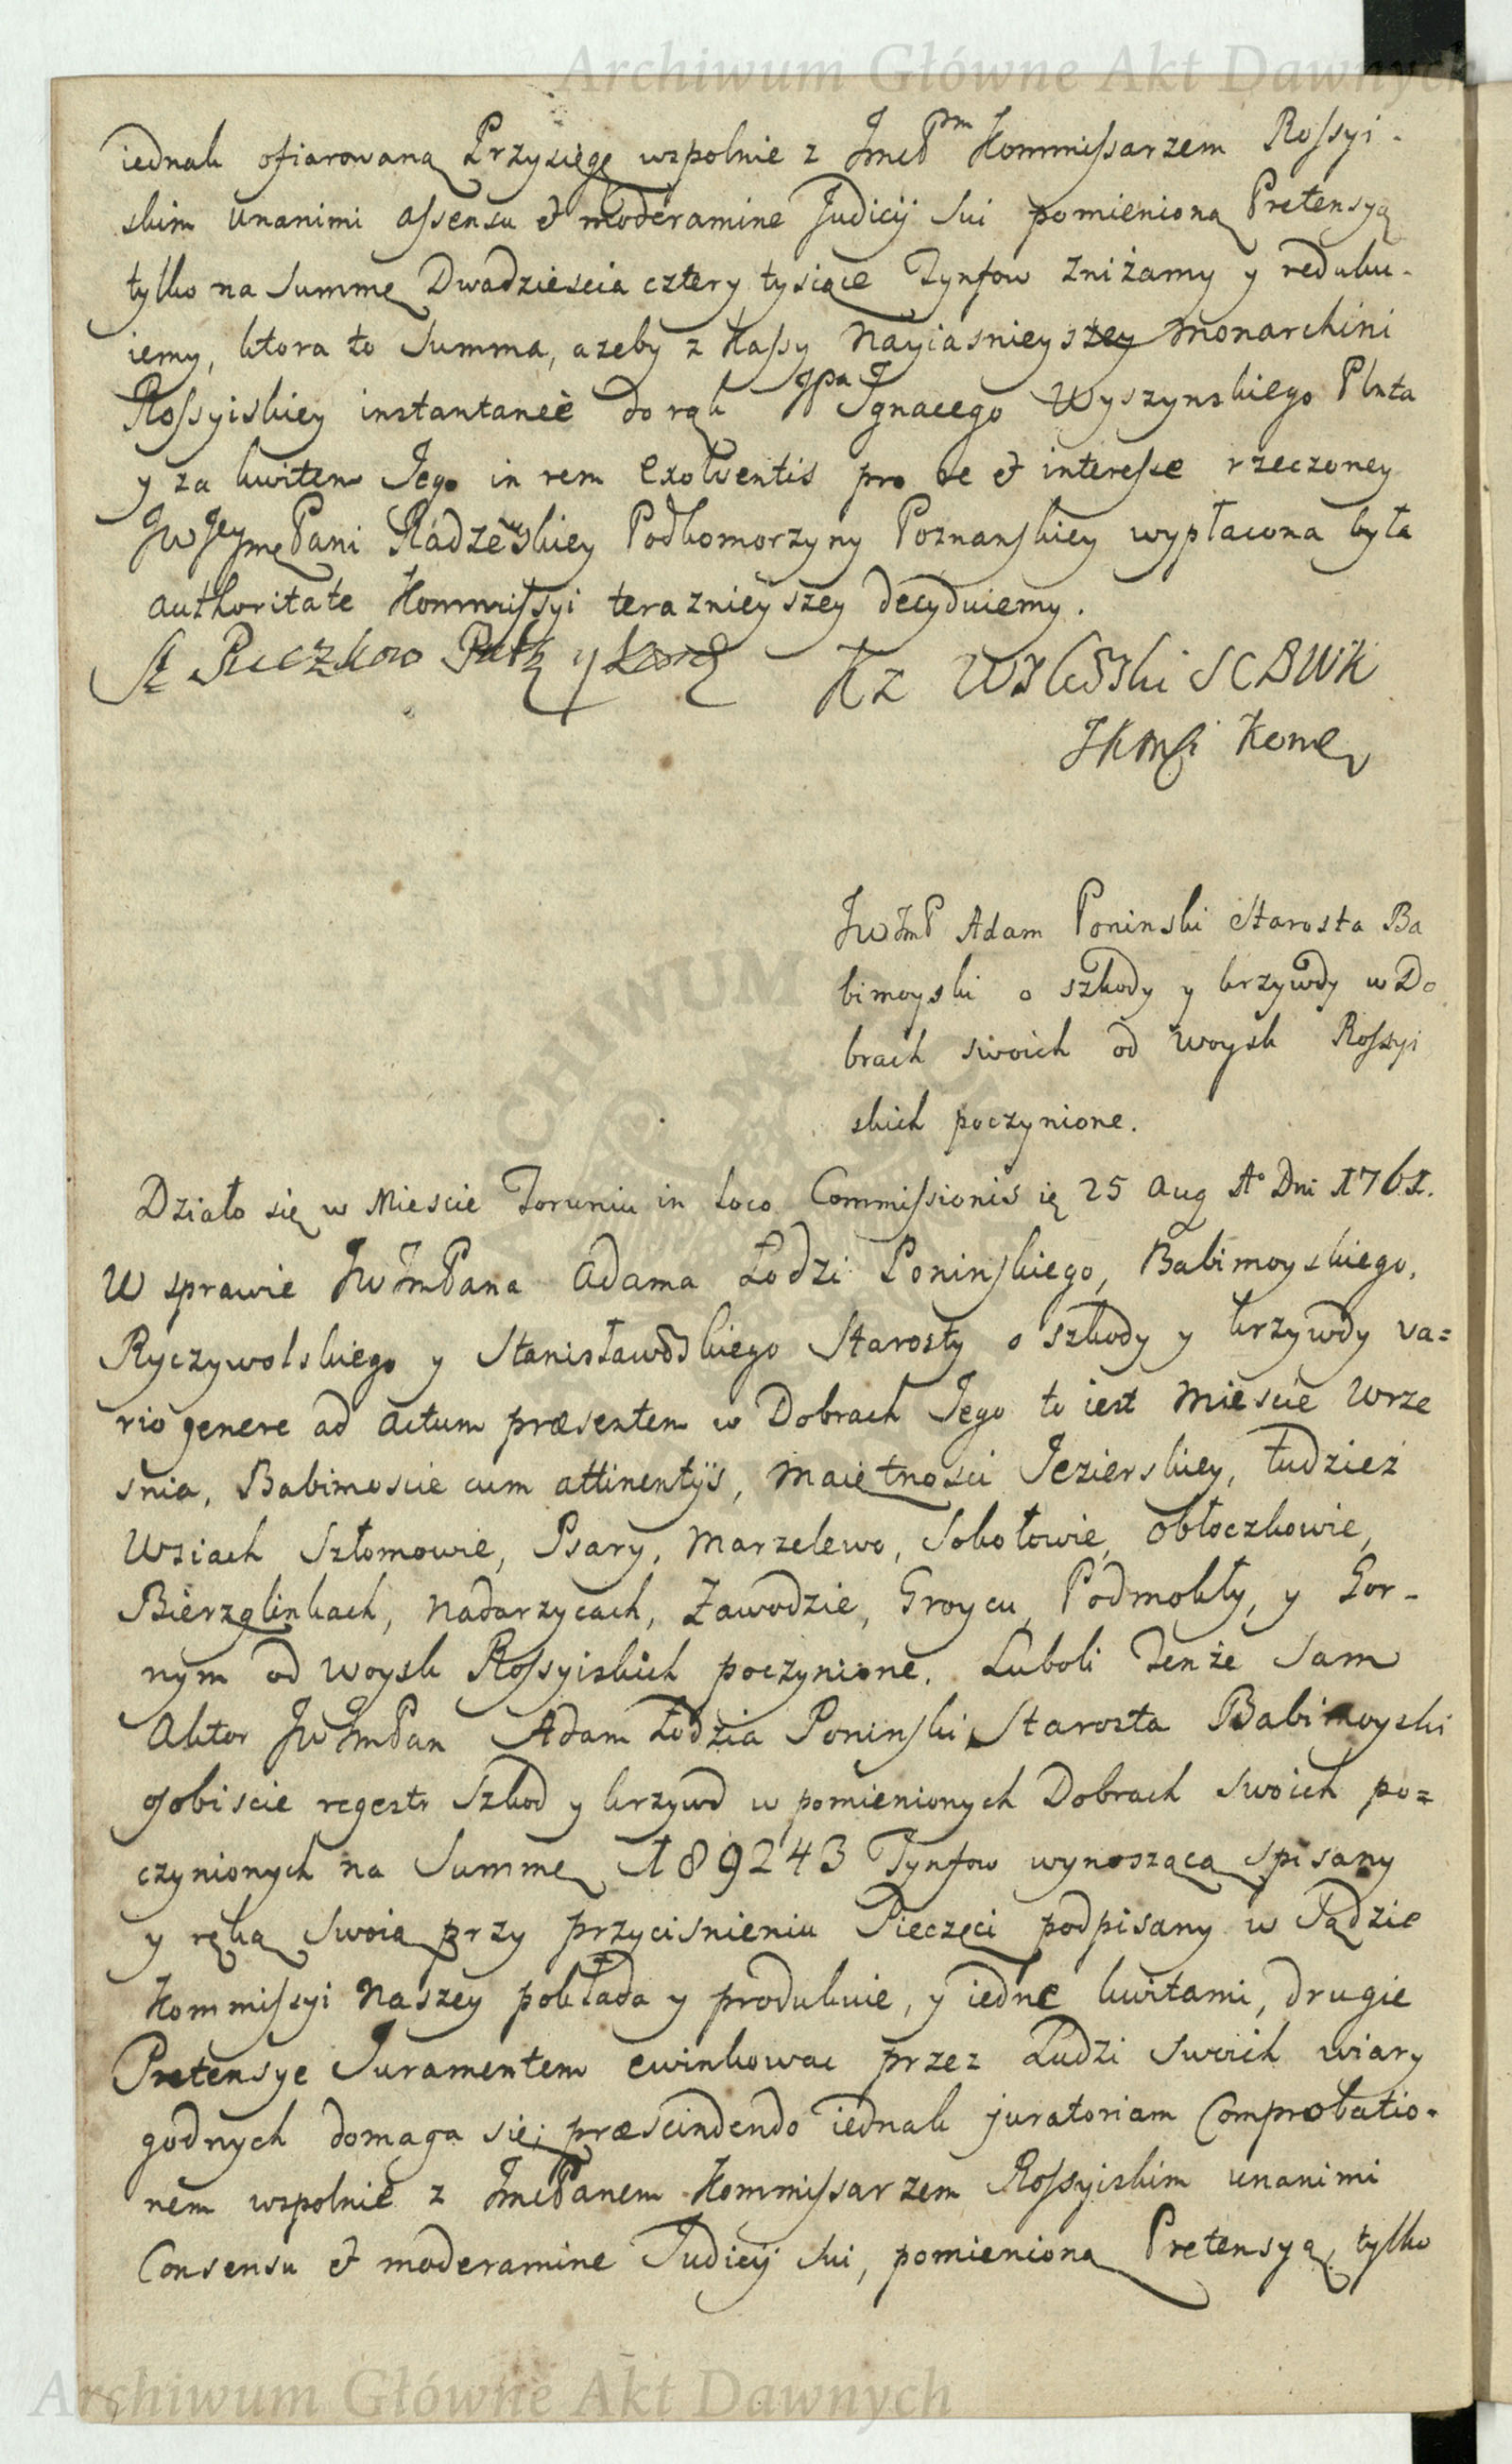 Archiwum Główne Akt Dawnych
iednak ofiarowaną Przysięgę wspolnie z JmcPm Kommissarzem Rossyi-
skim unanimi assensu et moderamine Judicij sui pomienioną Pretensyą
tylko na Summę Dwadziescia cztery tysiące Tynfow zniżamy y reduku-
iemy, ktora to Summa, azeby z Kassy Nayiasnieyszey Monarchini
Rossyiskiey instantaneè do rąk JPa Ignacego Wyszynskiego Plnta
y za kwitem Jego in rem exolventis pro se et interesse rzeczoney
JwJeymęPani Radzewskiey Podkomorzyny Poznanskiey wypłacona była
authoritate Kommissyi teraznieyszey decyduiemy.
JKMśi Kome
JwJmP Adam Poninski Starosta Ba
bimoyski o szkody y krzywdy w Do
brach swoich od woysk Rossyi
skich poczynione.
Działo się w Miescie Toruniu in Loco Commissionis ię 25 Aug Ao Dni 1761.
W sprawie JwJmPana Adama Łodzi Poninskiego, Babimoyskiego,
Ryczywolskiego y Stanisławowskiego Starosty o szkody y krzywdy va=
rio genere ad actum præsentem w Dobrach Jego to iest Miescie Wrze
snia, Babimoscie cum attinentijs, Maiętnosci Jezierskiey, tudziez
Wsiach Szłomowie, Psary, Marzelewo, Sokołowie, Obłoczkowie,
Bierzglinkach, Nadarzycach, Zawodzie, Groycu, Podmokły, y Gor-
nym od woysk Rossyiskich poczynione. Luboli tenże sam
Aktor JwJmPan Adam Łodzia Poninski Starosta Babimoyski
osobiscie regestr szkod y krzywd w pomienionych Dobrach swoich po=
czynionych na Summę 189243 Tynfow wynoszącą spisany
y ręką swoią przy przycisnieniu Pieczęci podpisany w Sądzie
Kommissyi Naszey pokłada y produkuie, y iedne kwitami, drugie
Pretensye Juramentem ewinkowac przez Ludzi swoich wiary
godnych domaga się; præscindendo iednak juratoriam Comprobatio-
nem wspolnie z JmcPanem Kommissarzem Rossyiskim unanimi
Consensu et moderamine Judicij sui, pomienioną Pretensyą, tylko
Archiwum Główne Akt Dawnych